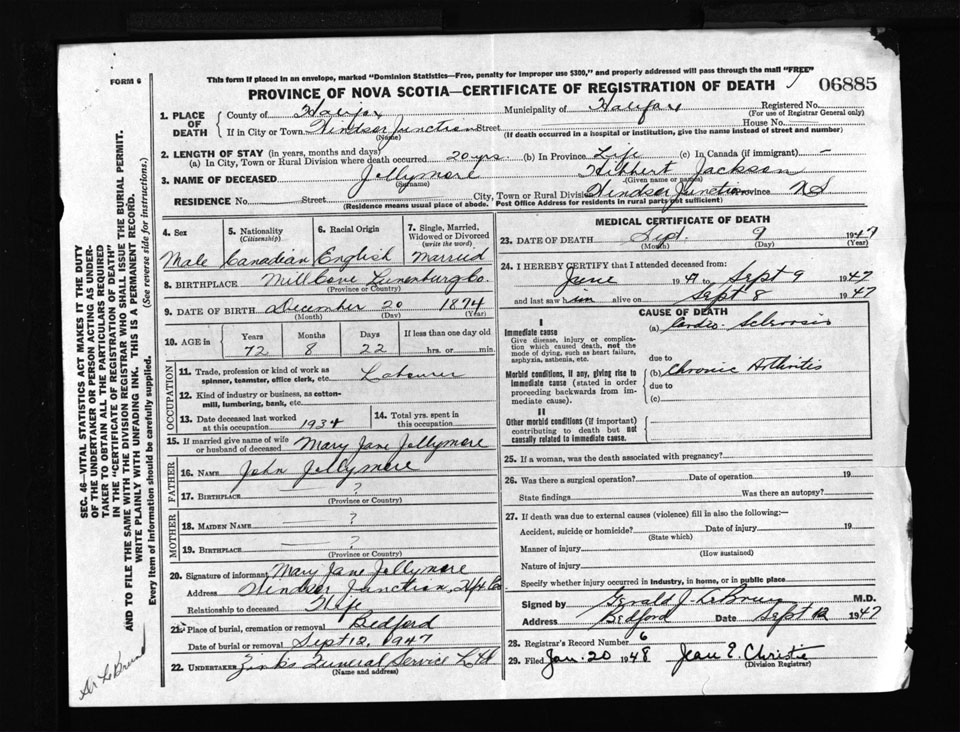 FORM 6
This form if placed in an envelope, marked "Dominion Statistics—Free, penalty for improper use $300," and properly addressed will pass through the mail "FREE"
PROVINCE OF NOVA SCOTIA—CERTIFICATE OF REGISTRATION OF DEATH
06885
1. PLACE OF DEATH
County of Halifax Municipality of Halifax Registered No.
(For use of Registrar General only)
If in City or Town Windsor Junction Street House No.
(Name) (If death occurred in a hospital or institution, give the name instead of street and number)
2. LENGTH OF STAY (in years, months and days)
(a) In City, Town or Rural Division where death occurred 20 yrs. (b) In Province Life (c) In Canada (if immigrant) –
3. NAME OF DECEASED Jollymore Hibbert Jackson
(Surname) (Given name or names)
RESIDENCE No. Street City, Town or Rural Division Windsor Junction Province N S
(Residence means usual place of abode. Post Office Address for residents in rural parts not sufficient)
4. Sex
Male
5. Nationality
(Citizenship)
Canadian
6. Racial Origin
English
7. Single, Married, Widowed or Divorced
(write the word)
Married
8. BIRTHPLACE Mill Cove Lunenburg Co.
(Province or Country)
9. DATE OF BIRTH December 20 1874
(Month) (Day) (Year)
10. AGE in
Years Months Days If less than one day old
72 8 22 hrs. or min.
OCCUPATION
11. Trade, profession or kind of work as spinner, teamster, office clerk, etc. Labourer
12. Kind of industry or business, as cotton-mill, lumbering, bank, etc.
13. Date deceased last worked at this occupation 1934
14. Total yrs. spent in this occupation
15. If married give name of wife or husband of deceased Mary Jane Jollymore
FATHER
16. NAME John Jollymore
17. BIRTHPLACE ?
(Province or Country)
MOTHER
18. MAIDEN NAME ?
19. BIRTHPLACE ?
(Province or Country)
20. Signature of informant Mary Jane Jollymore
Address Windsor Junction, Hfx Co
Relationship to deceased Wife
21. Place of burial, cremation or removal Bedford
Date of burial or removal Sept 12, 1947
22. UNDERTAKER Zinks Funeral Service Ltd
(Name and address)
MEDICAL CERTIFICATE OF DEATH
23. DATE OF DEATH Sept. 9 1947
(Month) (Day) (Year)
24. I HEREBY CERTIFY that I attended deceased from:
June 1947 to Sept 9 1947
and last saw him alive on Sept 8 1947
CAUSE OF DEATH
I
Immediate cause
Give disease, injury or complication which caused death, not the mode of dying, such as heart failure, asphyxia, asthenia, etc.
(a) Cardio-Sclerosis
due to
Morbid conditions, if any, giving rise to immediate cause (stated in order proceeding backwards from immediate cause).
(b) Chronic Arthritis
due to
(c)
II
Other morbid conditions (if important) contributing to death but not causally related to immediate cause.
25. If a woman, was the death associated with pregnancy?
26. Was there a surgical operation? Date of operation 19
State findings Was there an autopsy?
27. If death was due to external causes (violence) fill in also the following:—
Accident, suicide or homicide? Date of injury 19
(State which)
Manner of injury
(How sustained)
Nature of injury
Specify whether injury occurred in industry, in home, or in public place
Signed by Gerald J. LeBrun M.D.
Address Bedford Date Sept 12 1947
28. Registrar's Record Number 6
29. Filed Jan. 20 1948 Jean E. Christie
(Division Registrar)
SEC. 46—VITAL STATISTICS ACT MAKES IT THE DUTY
OF THE UNDERTAKER OR PERSON ACTING AS UNDER-
TAKER TO OBTAIN ALL THE PARTICULARS REQUIRED
IN THE "CERTIFICATE OF REGISTRATION OF DEATH"
AND TO FILE THE SAME WITH THE DIVISION REGISTRAR WHO SHALL ISSUE THE BURIAL PERMIT.
WRITE PLAINLY WITH UNFADING INK. THIS IS A PERMANENT RECORD.
(See reverse side for instructions.)
Every item of information should be carefully supplied.
Dr LeBrun